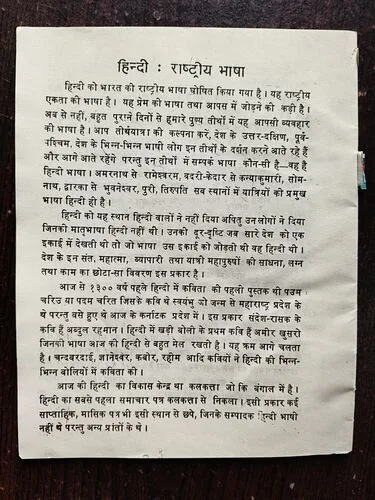 हिन्दी : राष्ट्रीय भाषा
हिन्दी को भारत की राष्ट्रीय भाषा घोषित किया गया है । यह राष्ट्रीय
एकता की भाषा है । यह प्रेम की भाषा तथा आपस में जोड़ने की कड़ी है ।
अब से नहीं, बहुत पुराने दिनों से हमारे पुण्य तीर्थों में यह आपसी व्यवहार
की भाषा है । आप तीर्थयात्रा की कल्पना करें, देश के उत्तर-दक्षिण, पूर्व-
पश्चिम, देश के भिन्न-भिन्न भाषी लोग इन तीर्थों के दर्शन करने आते रहे हैं
और आगे आते रहेंगे परन्तु इन तीर्थों में सम्पर्क भाषा कौन-सी है—वह है
हिन्दी । अमरनाथ से रामेश्वरम, बदरी-केदार से कन्याकुमारी, सोम-
नाथ, द्वारका से भुवनेश्वर, पुरी, तिरुपति सब स्थानों में यात्रियों की प्रमुख
भाषा हिन्दी ही है ।
हिन्दी को यह स्थान हिन्दी वालों ने नहीं दिया अपितु उन लोगों ने दिया
जिनकी मातृभाषा हिन्दी नहीं थी । उनकी दूर-दृष्टि जब सारे देश को एक
इकाई में देखती थी तो जो भाषा उस इकाई को जोड़ती थी वह हिन्दी थी ।
देश के इन संत, महात्मा, व्यापारी तथा यात्री महापुरुषों की साधना, लग्न
तथा काम का छोटा-सा विवरण इस प्रकार है ।
आज से १३०० वर्ष पहले हिन्दी में कविता की पहली पुस्तक थी पउम
चरिउ या पदम चरित जिसके कवि थे स्वयंभु जो जन्म से महाराष्ट्र प्रदेश के
थे परन्तु बसे हुए थे आज के कर्नाटक प्रदेश में । इस प्रकार संदेश-रासक के
कवि हैं अब्दुल रहमान । हिन्दी में खड़ी बोली के प्रथम कवि हैं अमीर खुसरो
जिनकी भाषा आज की हिन्दी से बहुत मेल खाती है । यह क्रम आगे चलता
है । चन्दबरदाई, ज्ञानेश्वर, कबीर, रहीम आदि कवियों ने हिन्दी की भिन्न-
भिन्न बोलियों में कविता की ।
आज की हिन्दी का विकास केन्द्र था कलकत्ता जो कि बंगाल में है ।
हिन्दी का सबसे पहला समाचार पत्र कलकत्ता से निकला । इसी प्रकार कई
साप्ताहिक, मासिक पत्र भी इसी स्थान से छपे, जिनके सम्पादक हिन्दी भाषी
नहीं थे परन्तु अन्य प्रांतों के थे ।